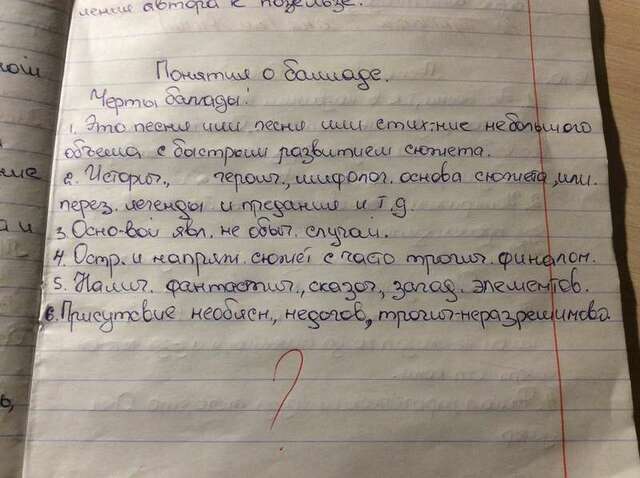 ление автора к
Понятия о балладе.
Черты балады!
1. Это песня или песня или стих-ние небольшого
объема с быстрым развитием сюжета.
2. Исторыч., героич., мифолог. основа сюжета, или
перез. легенды и предания и т.д.
3. Осно-вой явл. не обыч. случай.
4. Остр. и напряж. сюжет с часто трогич. финалом.
5. Налич. фантастич., сказоч., загад. элементов.
6. Присутсвие необясн., недогов., трогич-неразрешимова
?